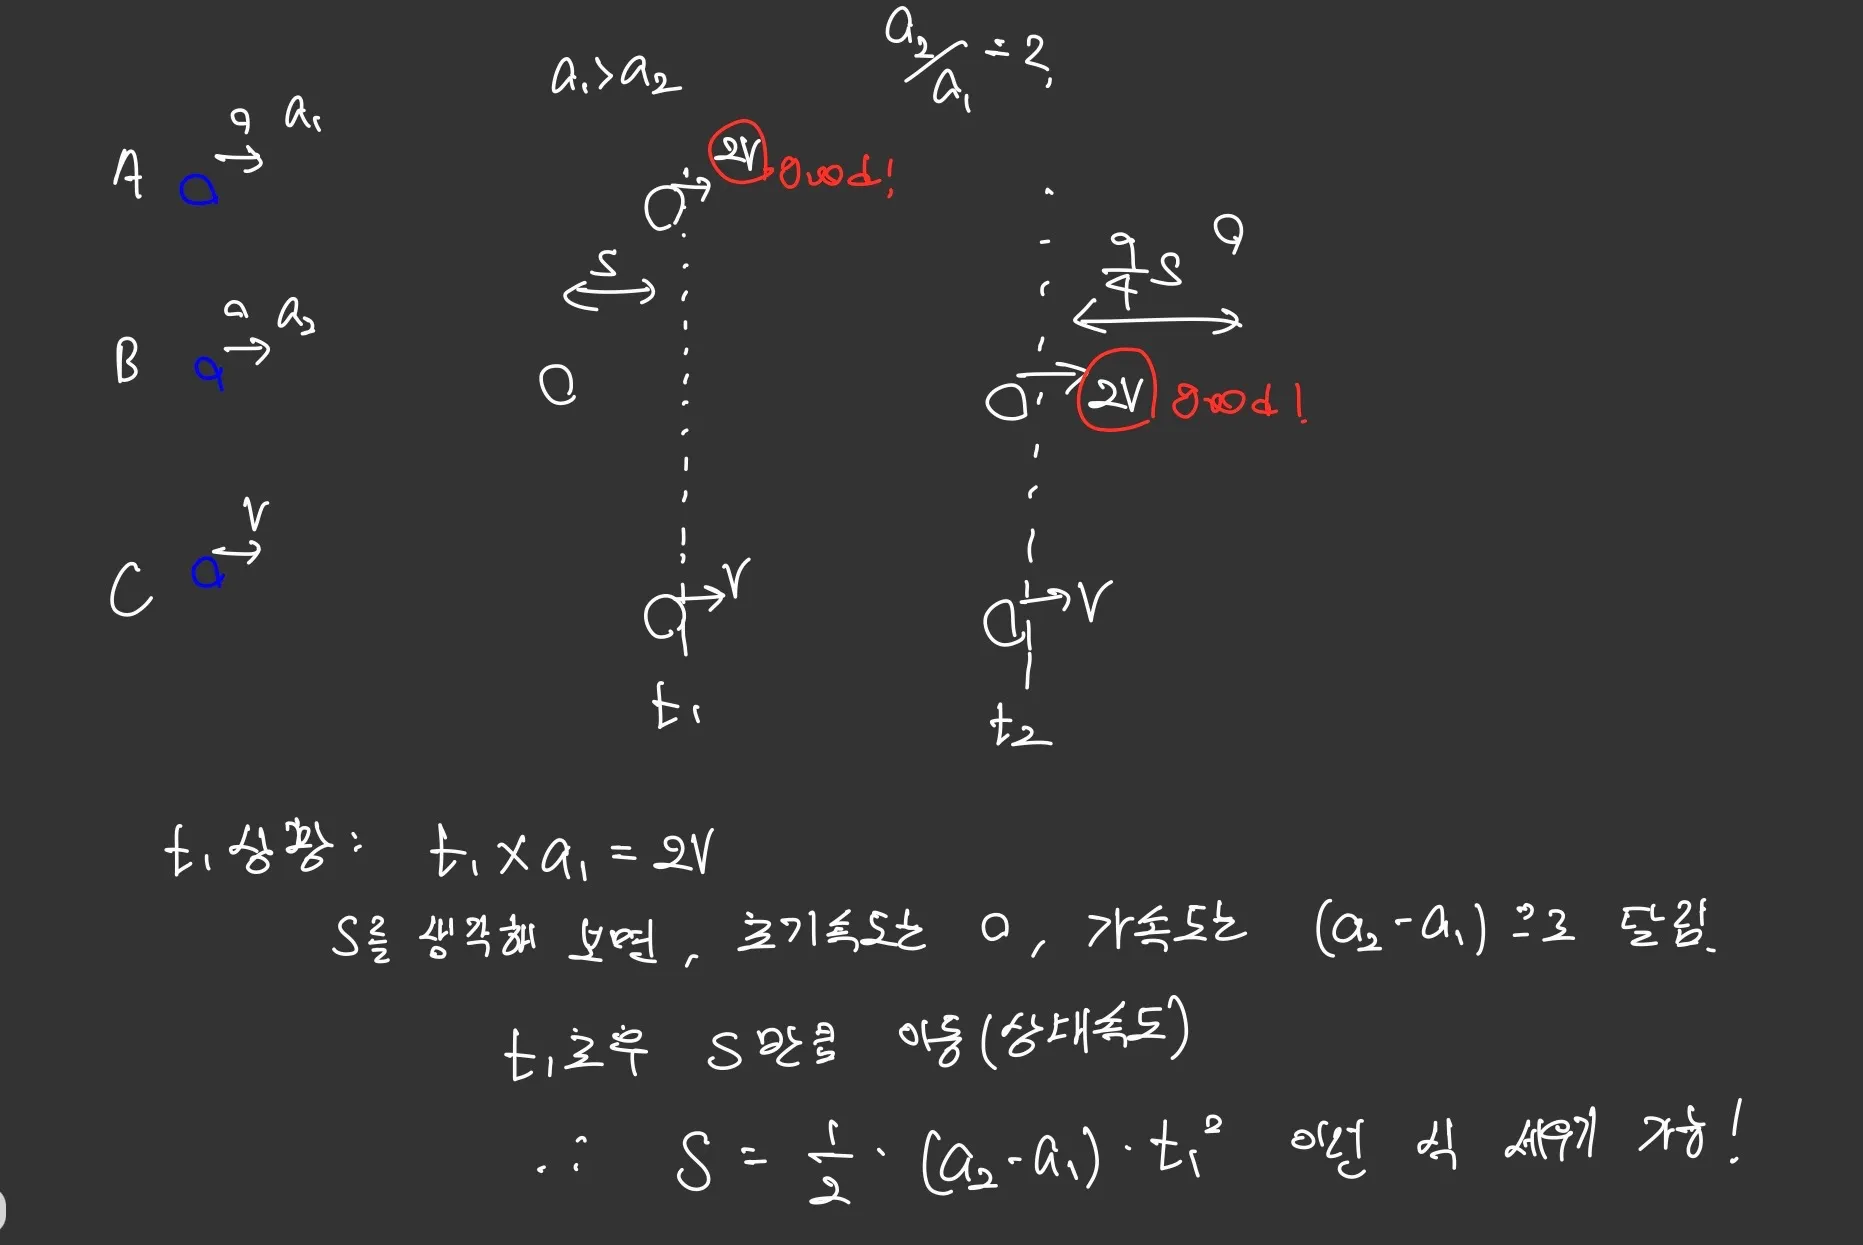 a₁>a₂
a₂/a₁=?
A a a₁
2V good!
S
9/4 S
B a a₂
2V good!
C V
V
V
t₁
t₂
t₁상황: t₁×a₁=2V
S를 생각해 보면, 초기속도는 0, 가속도는 (a₂-a₁)으로 달림.
t₁초후 S만큼 이동(상대속도)
∴ S = 1/2·(a₂-a₁)·t₁² 이런 식 세우기 가능!